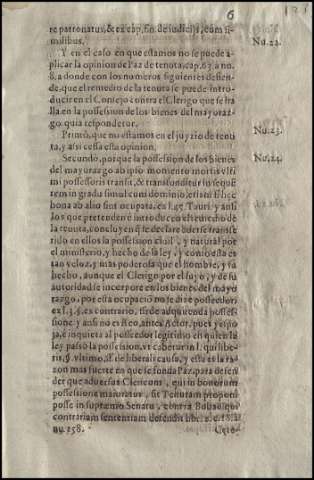 6
re patronatus, & ex cap. fin. de iudicijs, cum similibus.
Nu. 22.
Y en el caso en que estamos no se puede aplicar la opinion de Paz de tenuta, cap. 63. a nu.
8. a donde con los numeros siguientes defiende, que el remedio de la tenuta se puede introducir en el Consejo contra el Clerigo que se halla en la possession de los bienes del mayorazgo.
Nu. 23.
Primò, que no estamos en el juyzio de tenuta, y assi cessa esta opinion.
Nu. 24.
Secundò, porque la possession de los bienes
del mayorazgo ab ipso momento mortis vltimi possessoris transit, & transfunditur in sequẽtem in gradu simul cum dominio, etiã si
bona ab alio sint ocupata, ex l. 45. Tauri, y ansi
los que pretenden è introducen el remedio de
la tenuta, concluyen q̃ se declare auerse transferido en ellos la possession ciuil, y natural por
el ministerio, y hecho de la ley, y como esta es
tan veloz, y mas poderosa que el hombre, y su
hecho, aunque el Clerigo por el suyo, y de su
autoridad se incorpore en los bienes del mayorazgo, por esta ocupacion no se dize possedor
è contrario, possessione: y ansi no es Reo, antes Actor, pues
è inquieta al possedor legitimo en quien la
ley passò la possession, vt liberis, §. vltimo, ff. de liberali causa, y esta es la razon mas fuerte en que se funda Paz para defender que aduersus Clericum, qui in bonorum
possessione maioratus, sit Tenutam proponi
posse in supremo Senatu, contra
contrariam sententiam defendit lib. 2. c. 18.
nu. 258.